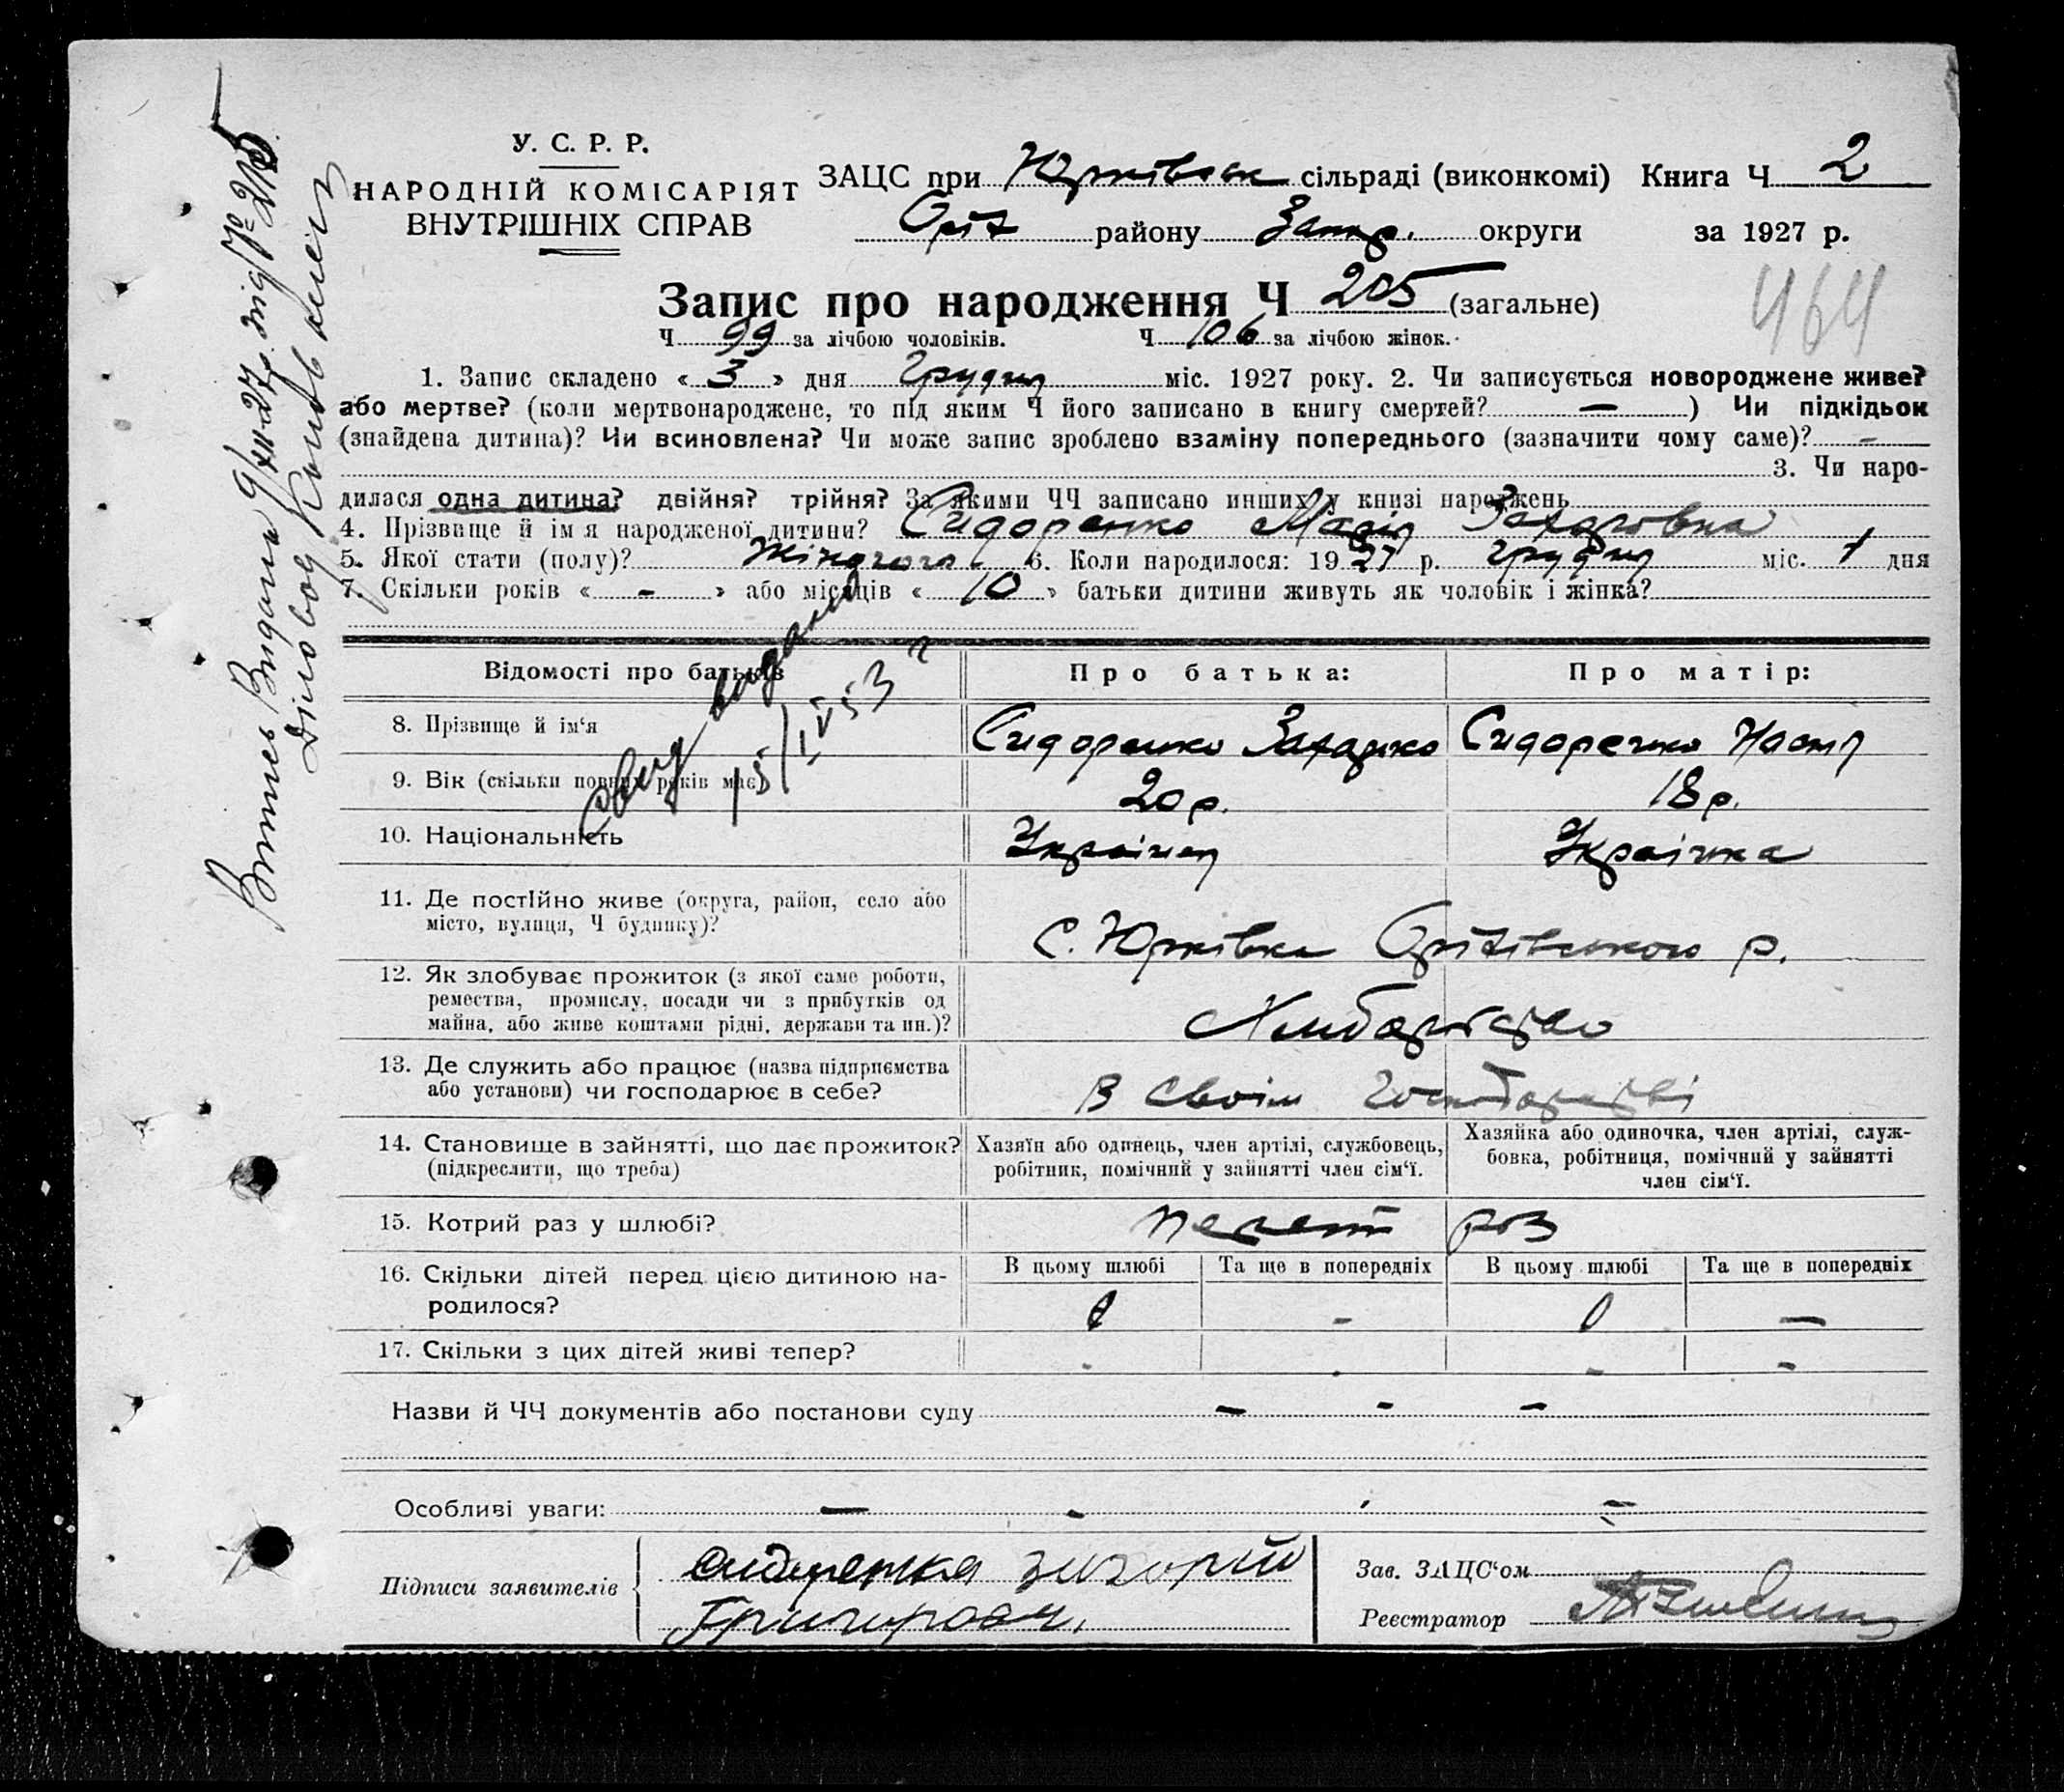 У. С. Р. Р.
НАРОДНІЙ КОМІСАРІЯТ
ВНУТРІШНІХ СПРАВ
ЗАЦС при Юрківськ сільраді (виконкомі) Книга Ч 2
Оріх району Запор. округи за 1927 р.
Запис про народження Ч 205 (загальне)
464
Ч 99 за лічбою чоловіків. Ч 106 за лічбою жінок.
1. Запис складено « 3 » дня Грудня міс. 1927 року. 2. Чи записується новороджене живе?
або мертве? (коли мертвонароджене, то під яким Ч його записано в книгу смертей? — ) Чи підкідьок
(знайдена дитина)? Чи всиновлена? Чи може запис зроблено взаміну попереднього (зазначити чому саме)? —
3. Чи наро-
дилася одна дитина? двійня? трійня? За якими ЧЧ записано инших у книзі народжень
4. Прізвище й імя народженої дитини? Сидоренко Марія Захаровна
5. Якої стати (полу)? Жіночого 6. Коли народилося: 1927 р. грудня міс. 1 дня
7. Скільки років « - » або місяців « 10 » батьки дитини живуть як чоловік і жінка?
Відомості про батьків Про батька: Про матір:
8. Прізвище й ім‘я Сидоренко Захарко Сидоренко Настя
9. Вік (скільки повних років має) 20 р. 18 р.
10. Національність Українец Українка
11. Де постійно живе (округа, район, село або
місто, вулиця, Ч будинку)?
С. Юрківка Оріхівського р.
12. Як здобуває прожиток (з якої саме роботи,
ремества, промислу, посади чи з прибутків од
майна, або живе коштами рідні, держави та ин.)?
Хлиборобство
13. Де служить або працює (назва підприємства
або установи) чи господарює в себе?
В своім господарстві
14. Становище в зайнятті, що дає прожиток?
(підкреслити, що треба)
Хазяїн або одинець, член артілі, службовець,
робітник, помічний у зайнятті член сім‘ї.
Хазяйка або одиночка, член артілі, служ-
бовка, робітниця, помічний у зайнятті
член сім‘ї.
15. Котрий раз у шлюбі? раз
16. Скільки дітей перед цією дитиною на-
родилося?
В цьому шлюбі Та ще в попередніх В цьому шлюбі Та ще в попередніх
0 - 0 —
17. Скільки з цих дітей живі тепер? - - - -
Назви й ЧЧ документів або постанови суду — - —
Особливі уваги: — -
Підписи заявителів
Григорович.
Зав. ЗАЦС‘ом
Реєстратор
Витяг Видано 9/XII-27 р. під № 215
Діловод
видано
15/IV 53 г